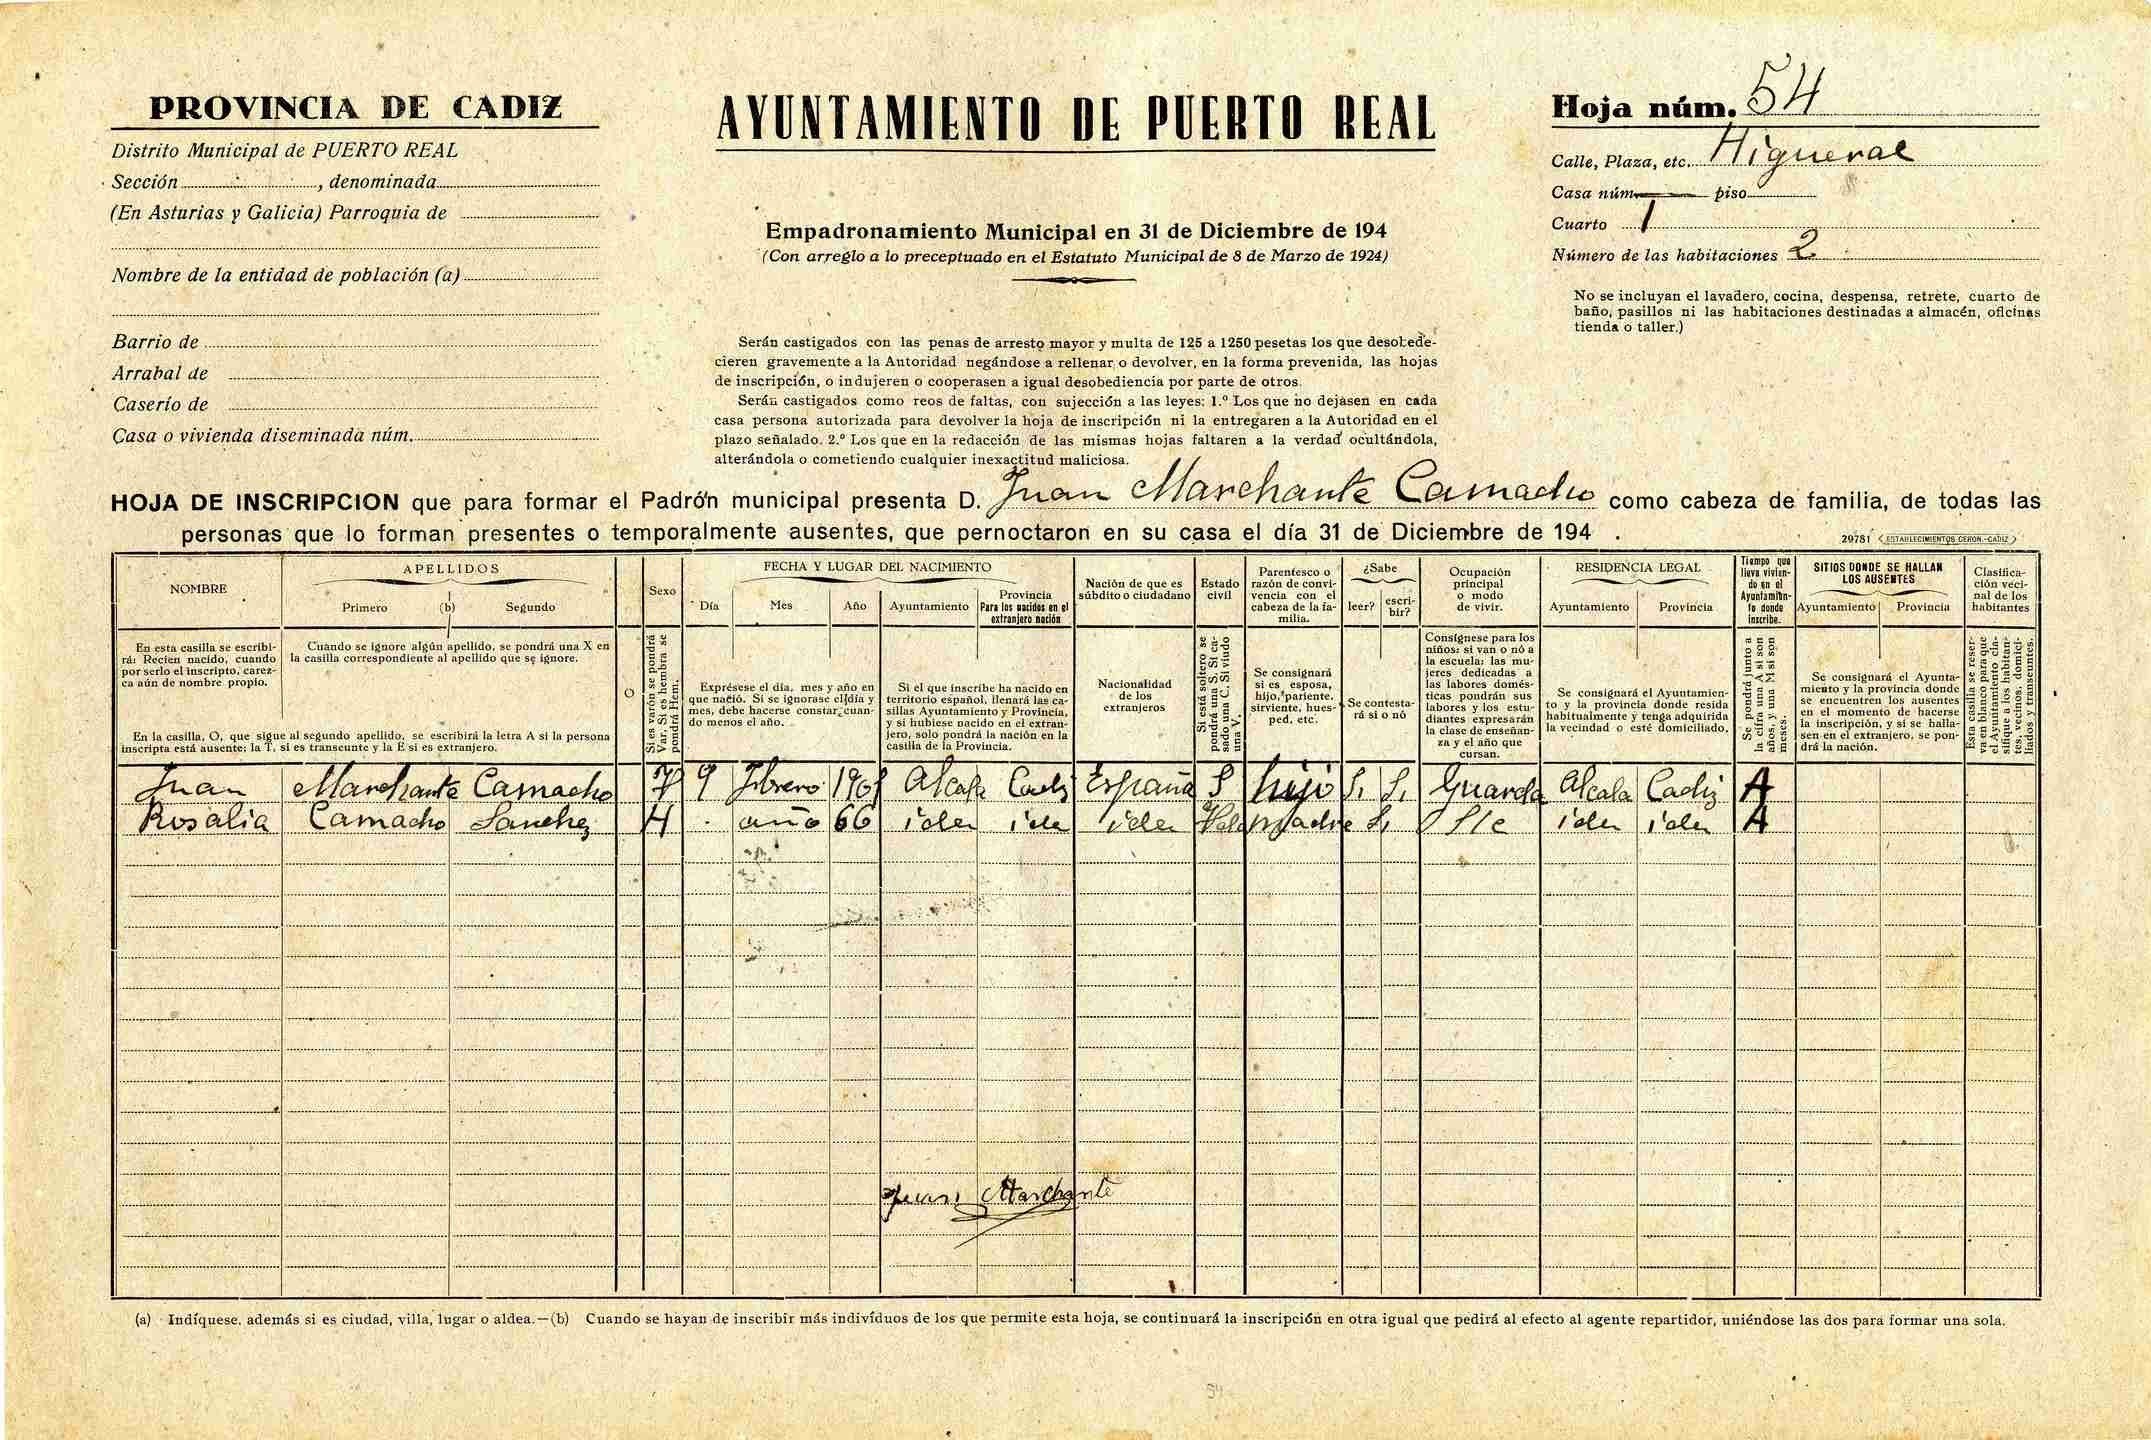 PROVINCIA DE CADIZ
Distrito Municipal de PUERTO REAL
Sección, denominada
(En Asturias y Galicia) Parroquia de
Nombre de la entidad de población (a)
Barrio de
Arrabal de
Caserío de
Casa o vivienda diseminada núm.
AYUNTAMIENTO DE PUERTO REAL
Empadronamiento Municipal en 31 de Diciembre de 194
(Con arreglo a lo preceptuado en el Estatuto Municipal de 8 de Marzo de 1924)
Serán castigados con las penas de arresto mayor y multa de 125 a 1250 pesetas los que desobede-
cieren gravemente a la Autoridad negándose a rellenar o devolver, en la forma prevenida, las hojas
de inscripción, o indujeren o cooperasen a igual desobediencia por parte de otros.
Serán castigados como reos de faltas, con sujección a las leyes: 1.º Los que no dejasen en cada
casa persona autorizada para devolver la hoja de inscripción ni la entregaren a la Autoridad en el
plazo señalado. 2.º Los que en la redacción de las mismas hojas faltaren a la verdad ocultándola,
alterándola o cometiendo cualquier inexactitud maliciosa.
Hoja núm. 54
Calle, Plaza, etc. Higueral
Casa núm. — piso
Cuarto 1
Número de las habitaciones 2
No se incluyan el lavadero, cocina, despensa, retrete, cuarto de
baño, pasillos ni las habitaciones destinadas a almacén, oficinas
tienda o taller.)
HOJA DE INSCRIPCION que para formar el Padrón municipal presenta D. Juan Marchante Camacho como cabeza de familia, de todas las
personas que lo forman presentes o temporalmente ausentes, que pernoctaron en su casa el día 31 de Diciembre de 194 .
29781 ESTABLECIMIENTOS CERON.-CADIZ
NOMBRE
En esta casilla se escribi-
rá: Recien nacido, cuando
por serlo el inscripto, carez-
ca aún de nombre propio.
APELLIDOS
Primero (b) Segundo
Cuando se ignore algún apellido, se pondrá una X en
la casilla correspondiente al apellido que se ignore.
En la casilla, O, que sigue al segundo apellido, se escribirá la letra A si la persona
inscripta está ausente; la T, si es transeunte y la E si es extranjero.
O
Sexo
Si es varón se pondrá
Var. Si es hembra se
pondrá Hem.
FECHA Y LUGAR DEL NACIMIENTO
Día Mes Año Ayuntamiento
Provincia
Para los nacidos en el
extranjero nación
Exprésese el día, mes y año en
que nació. Si se ignorase el día y
mes, debe hacerse constar, cuan-
do menos el año.
Si el que inscribe ha nacido en
territorio español, llenará las ca-
sillas Ayuntamiento y Provincia,
y si hubiese nacido en el extran-
jero, solo pondrá la nación en la
casilla de la Provincia.
Nación de que es
súbdito o ciudadano
Nacionalidad
de los
extranjeros
Estado
civil
Si está soltero se
pondrá una S. Si ca-
sado una C. Si viudo
una V.
Parentesco o
razón de convi-
vencia con el
cabeza de la fa-
milia.
Se consignará
si es esposa,
hijo, pariente,
sirviente, hues-
ped, etc.
¿Sabe
leer? escri-
bir?
Se contesta-
rá si o nó
Ocupación
principal
o modo
de vivir.
Consígnese para los
niños: si van o nó a
la escuela; las mu-
jeres dedicadas a
las labores domés-
ticas pondrán sus
labores y los estu-
diantes expresarán
la clase de enseñan-
za y el año que
cursan.
RESIDENCIA LEGAL
Ayuntamiento Provincia
Se consignará el Ayuntamien-
to y la provincia donde resida
habitualmente y tenga adquirida
la vecindad o esté domiciliado.
Tiempo que
lleva vivien-
do en el
Ayuntamien-
to donde
inscribe.
Se pondrá junto a
la cifra una A si son
años, y una M si son
meses.
SITIOS DONDE SE HALLAN
LOS AUSENTES
Ayuntamiento Provincia
Se consignará el Ayunta-
miento y la provincia donde
se encuentren los ausentes
en el momento de hacerse
la inscripción, y si se halla-
sen en el extranjero, se pon-
drá la nación.
Clasifica-
ción veci-
nal de los
habitantes
Esta casilla se reser-
va en blanco para que
el Ayuntamiento cla-
sifique a los habitan-
tes, vecinos, domici-
liados y transeuntes.
Juan Marchante Camacho 9 Febrero Alcala Cadiz España S hijo Si Si Guarda Alcala Cadiz A
Rosalia Camacho Sanchez H año 66 iden iden iden madre Si S/c iden iden A
Juan Marchante
(a) Indíquese, además si es ciudad, villa, lugar o aldea.—(b) Cuando se hayan de inscribir más indivíduos de los que permite esta hoja, se continuará la inscripción en otra igual que pedirá al efecto al agente repartidor, uniéndose las dos para formar una sola.
54